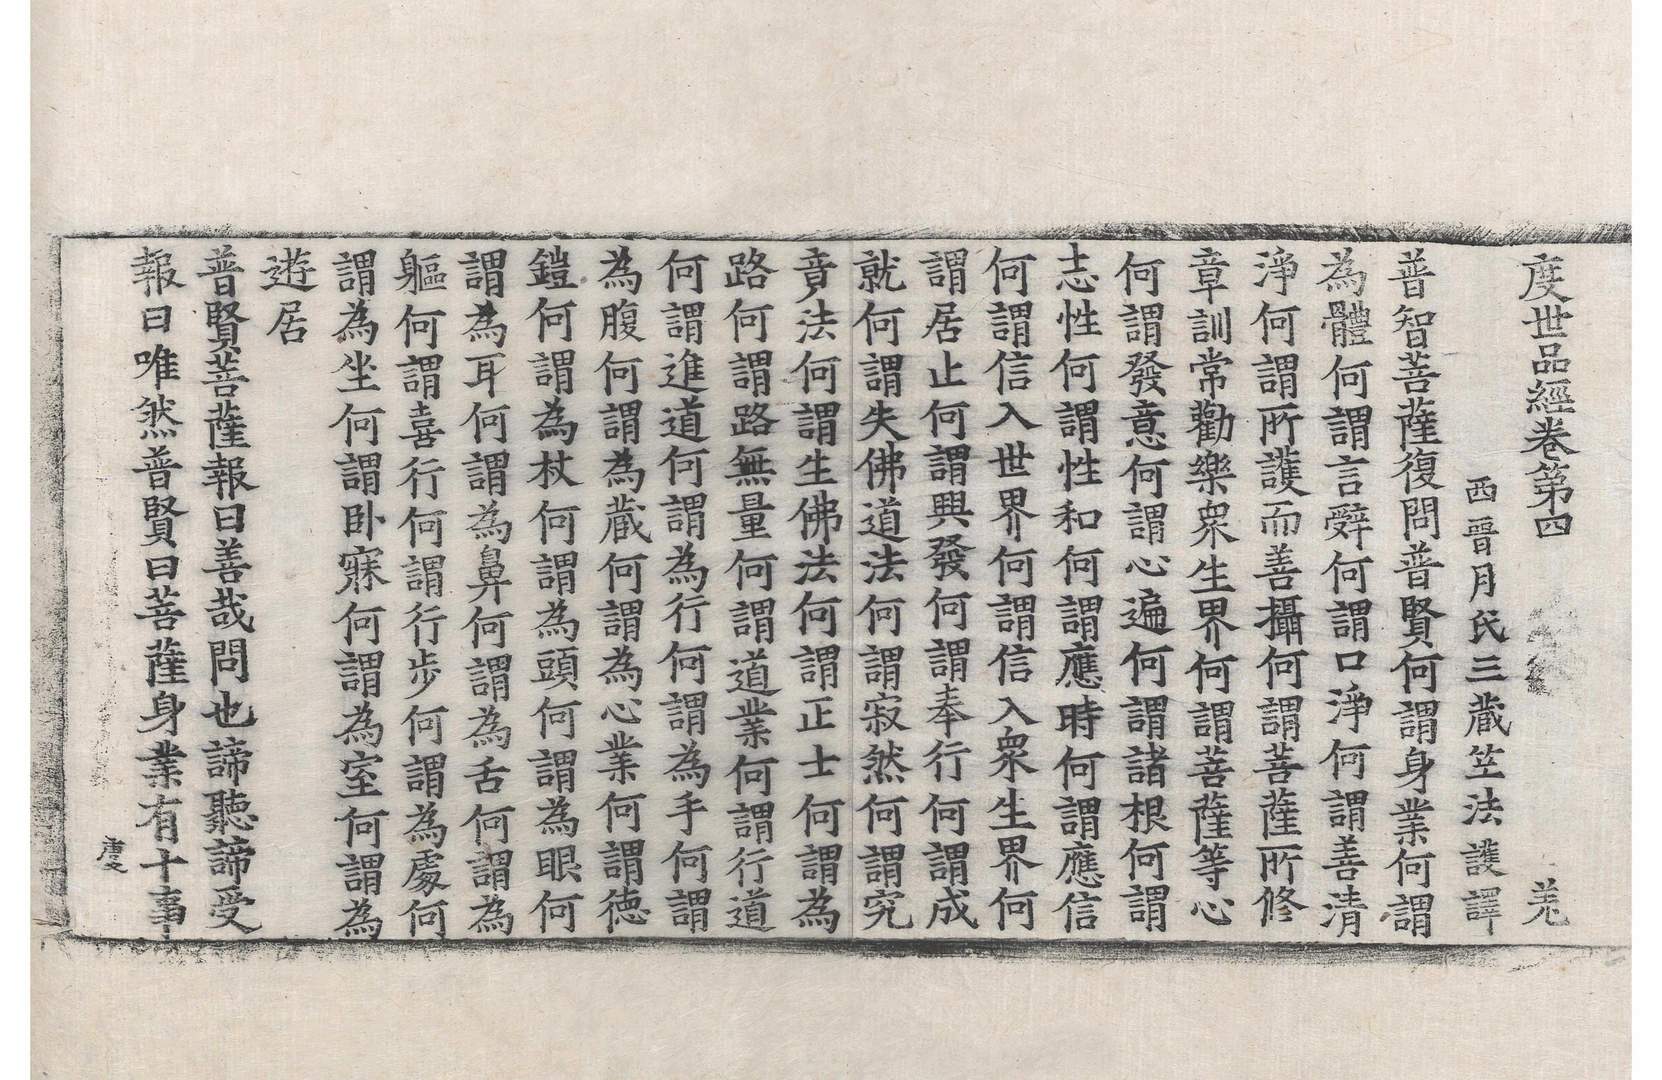 度世品經卷第四　羌
西晉月氏三藏竺法護譯
普智菩薩復問普賢何謂身業何謂
為體何謂言辤何謂口淨何謂善清
淨何謂所護而善攝何謂菩薩所修
章訓常勸樂眾生界何謂菩薩等心
何謂發意何謂心遍何謂諸根何謂
志性何謂性和何謂應時何謂應信
何謂信入世界何謂信入眾生界何
謂居止何謂興發何謂奉行何謂成
就何謂失佛道法何謂寂然何謂究
竟法何謂生佛法何謂正士何謂為
路何謂路無量何謂道業何謂行道
何謂進道何謂為行何謂為手何謂
為腹何謂為藏何謂為心業何謂德
鎧何謂為杖何謂為頭何謂為眼何
謂為耳何謂為鼻何謂為舌何謂為
軀何謂喜行何謂行步何謂為處何
謂為坐何謂卧寐何謂為室何謂為
遊居
普賢菩薩報曰善哉問也諦聽諦受
報曰唯然普賢曰菩薩身業有十事